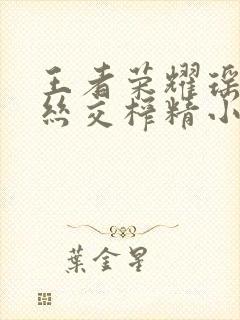 王者荣耀瑶
丝交榨精小
葉金星